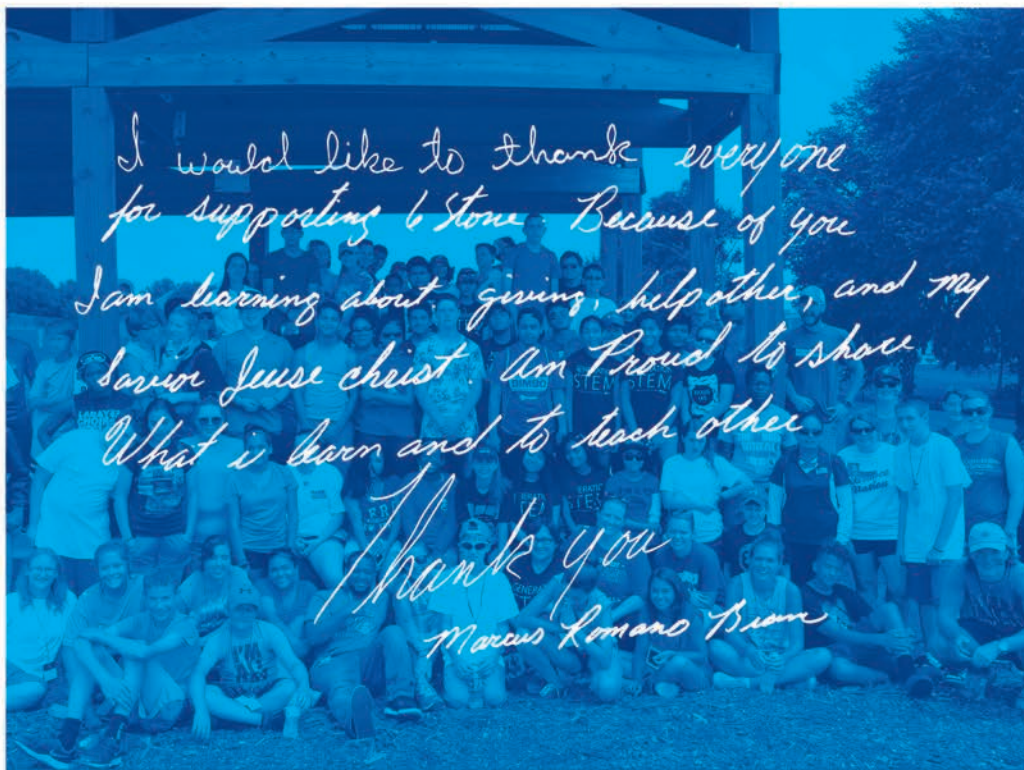 I would like to thank everyone
for supporting 6 Stone Because of you
I am learning about giving, help other, and my
Savior Jeuse christ. Am Proud to share
What i learn and to teach other
Thank you
Marcus Romano
STEM
STEM